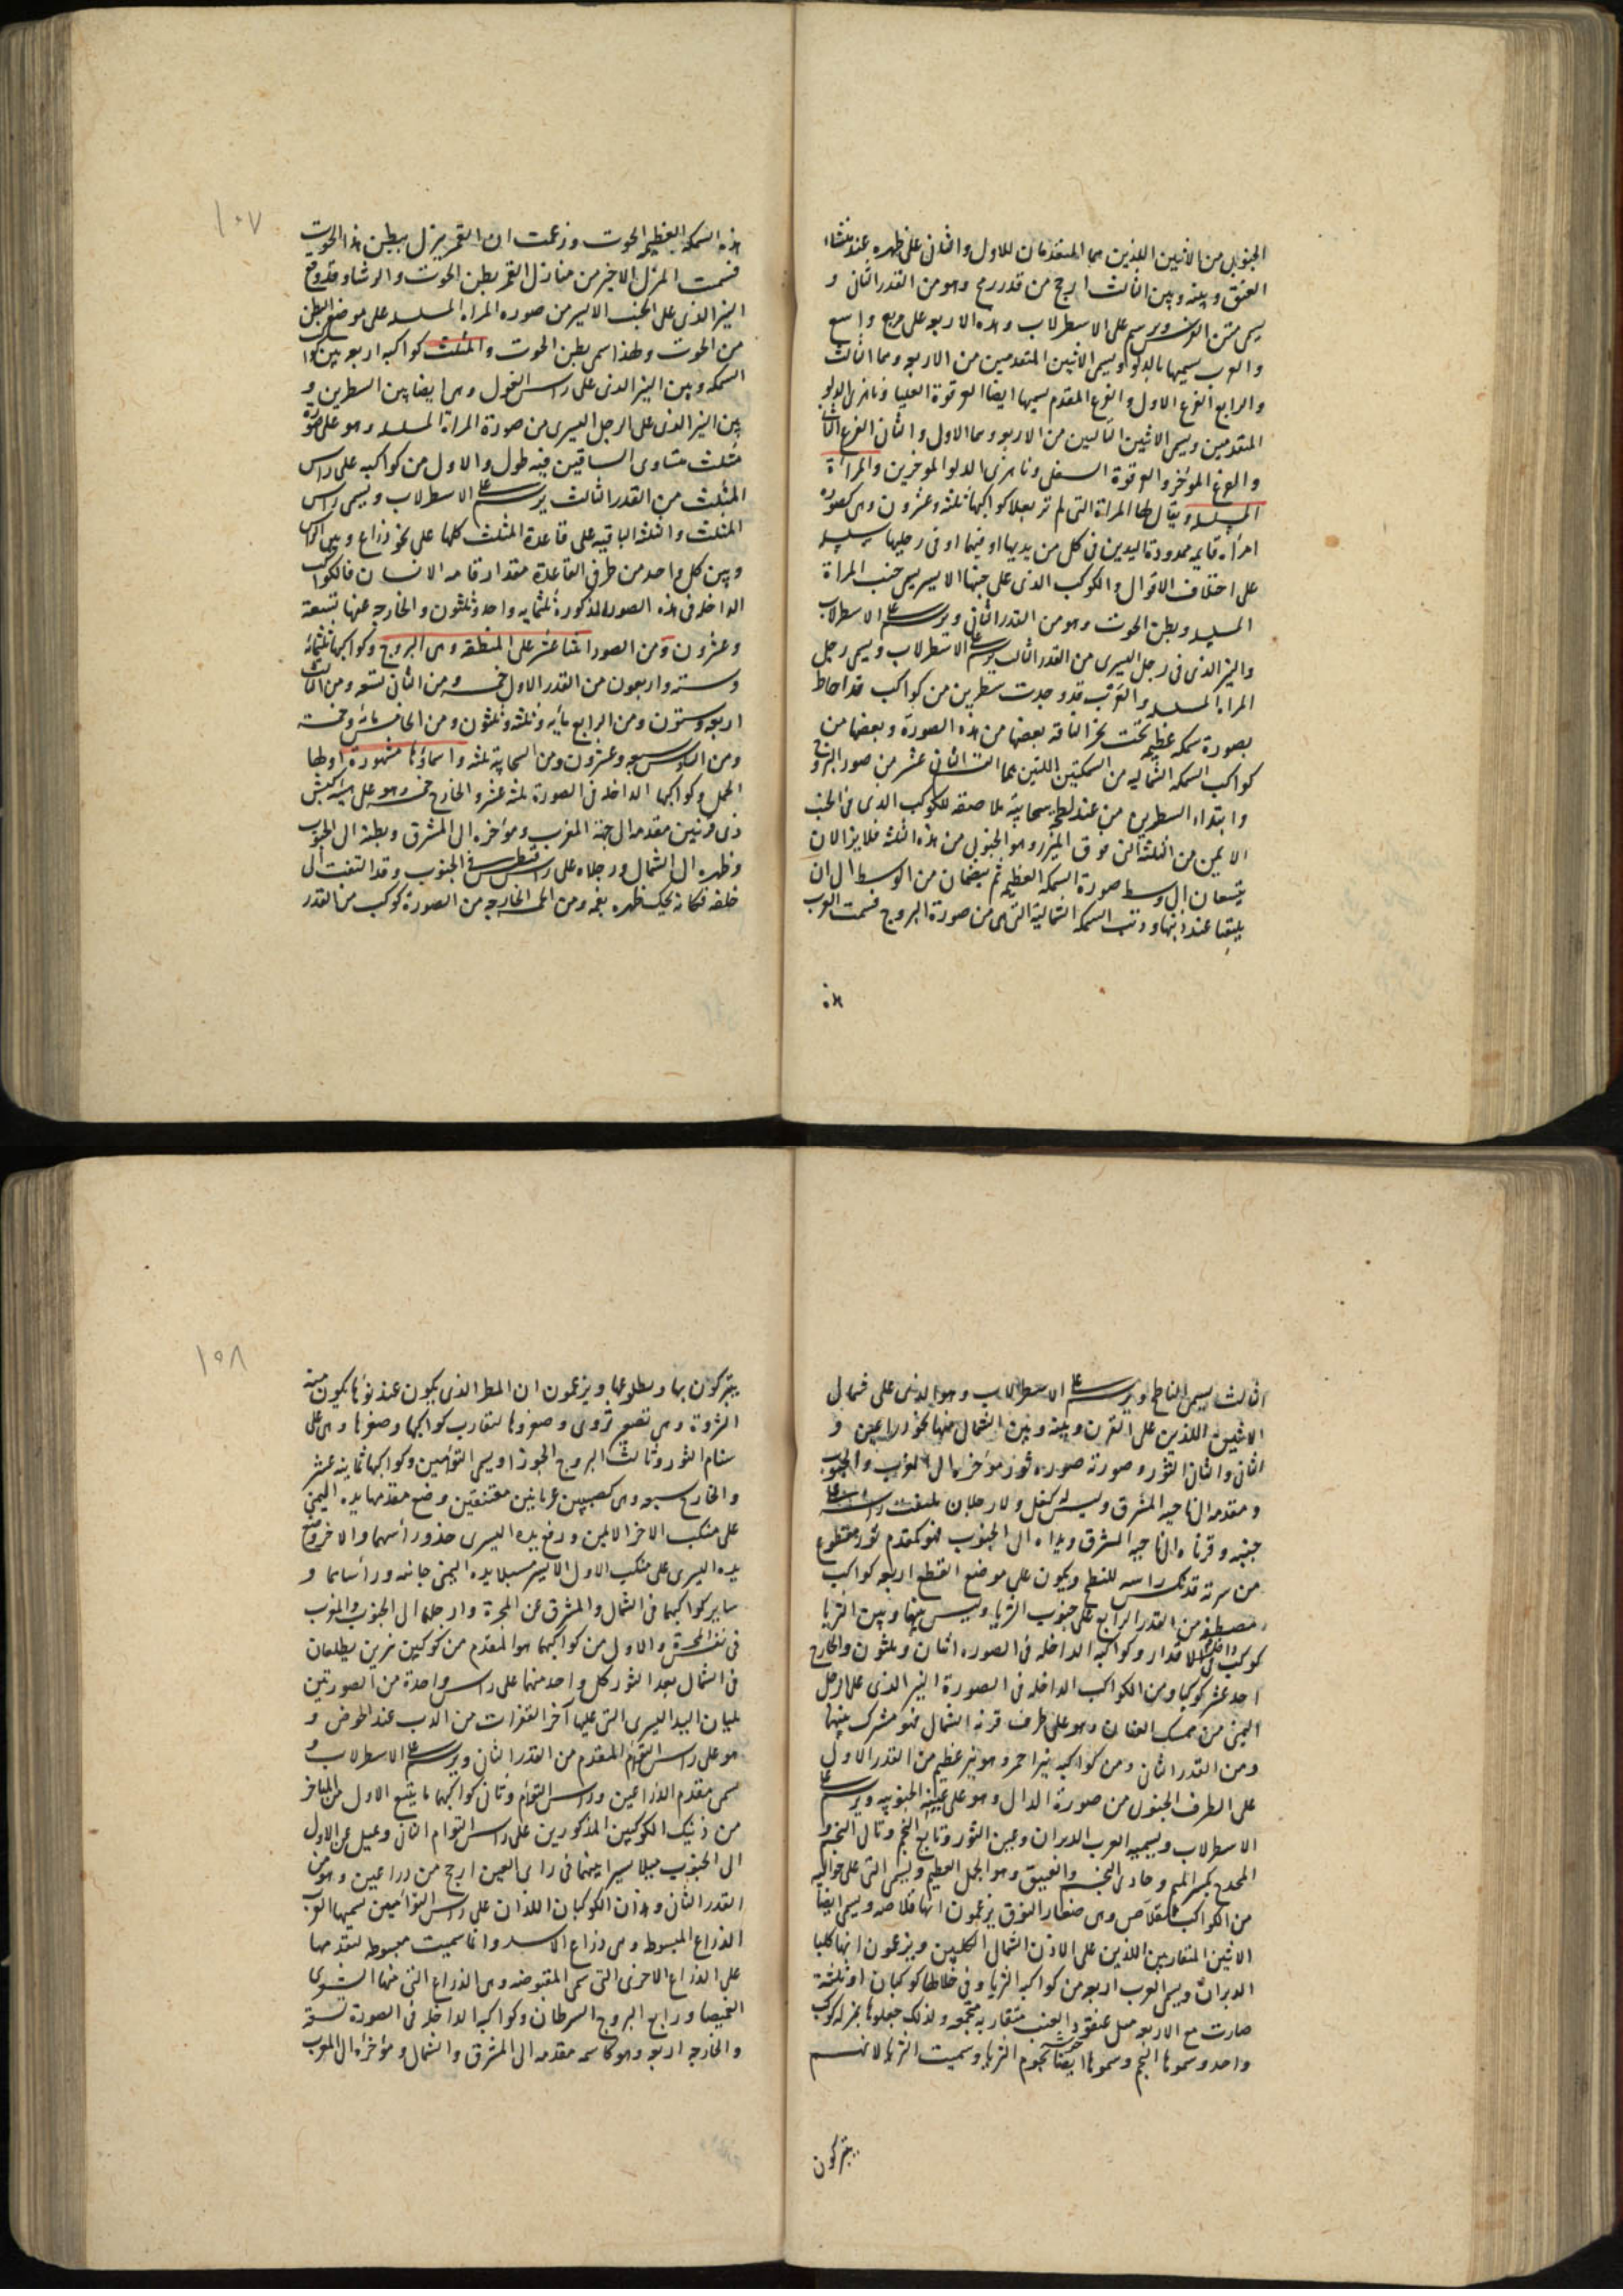 الجنوبى من الاثنين اللذين هما المتقدمان للاول والثانى على ظهره عند منشاء
العنق وبينه وبين الثالث ارجح من قدر رمح وهو من القدر الثانى و
يسمى متن الفرس ويرسم على الاسطرلاب وهذه الاربعه على مربع واسع
والعرب يسميها بالدلو ويسمى الاثنين المتقدمين من الاربعه وهما الثالث
والرابع الفرع الاول والفرع المقدم يسميها ايضا العرقوة العليا وناهزى الدلو
المتقدمين ويسمى الاثنين التاليين من الاربعه وهما الاول والثانى الفرع الثانى
والفرع المؤخر والعرقوة السفلى وناهزى الدلو المؤخرين والمراة
المسلسله ويقال لها المراة التى لم تر بعلا كواكبها ثلثه وعشرون وهى كصوره
امراه قايمه ممدودة اليدين فى كل من يديها او فيهما او فى رجليها سلسله
على اختلاف الاقوال والكوكب الذى على جنبها الايسر يسمى جنب المراة
المسلسله وبطن الحوت وهو من القدر الثانى ويرسم على الاسطرلاب
والنير الذى فى رجل اليسرى من القدر الثالث يرسم على الاسطرلاب ويسمى رجل
المراه المسلسله والعرب قد وجدت سطرين من كواكب قد احاط
بصورة سمكه عظيمه تحت نحر الناقه بعضها من هذه الصورة وبعضها من
كواكب السمكه الشماليه من السمكتين اللتين هما الثانى عشر من صور البروج
وابتداء السطرين من عند لطخه سحابيه ملاصقه للكوكب الذى فى الجنب
الايمن من الثلثه التى فوق الميزر وهو الجنوبى من هذه الثلثه فلا يزالان
يتسعان الى وسط صورة السمكه العظيمه ثم ينضمان من الوسط الى ان
يلتقيا عند ذنبها وذنب السمكه الشمالية التى هى من صورة البروج فسمت العرب
هذه
١٠٧
هذه السمكه العظيمه الحوت وزعمت ان القمر ينزل ببطن هذا الحوت
فسمت المنزل الاخير من منازل القمر بطن الحوت والرشا وقد وقع
النير الذى على الجنب الايسر من صوره المراه المسلسله على موضع البطن
من الحوت ولهذا سمى بطن الحوت والمثلث كواكبه اربعه بين
السمكه وبين النير الذى على راس الغول وهى ايضا بين السطرين و
بين النير الذى على الرجل اليسرى من صورة المراة المسلسله وهو على صورة
مثلث متساوى الساقين فيه طول والاول من كواكبه على راس
المثلث من القدر الثالث يرسم على الاسطرلاب ويسمى راس
المثلث والثلثه الباقيه على قاعدة المثلث كلها على نحو ذراع وبين الراس
وبين كل واحد من طرفى القاعدة مقدار قامه الانسان فالكواكب
الداخله فى هذه الصور المذكورة ثلثمايه واحد وثلثون والخارجه عنها تسعة
وعشرون ومن الصور اثنا عشر على المنطقه وهى البروج وكواكبها ثلثمائة
وسته واربعون من القدر الاول خمسه ومن الثانى تسعه ومن الثالث
اربعه وستون ومن الرابع مايه وثلثه وثلثون ومن الخامس مائة وخمسة
ومن السادس سبعه وعشرون ومن السحابيه ثلثه واسماؤها مشهورة اولها
الحمل وكواكبها الداخله فى الصورة ثلثه عشر والخارج خمسه وهو على هيئة كبش
ذى قرنين مقدمه الى جهة المغرب ومؤخره الى المشرق وبطنه الى الجنوب
وظهره الى الشمال ورجلاه على راس قيطس فى الجنوب وقد التفت الى
خلفه فكانه يحك ظهره بفمه ومن الخارجه من الصورة كوكب من القدر
الثالث يسمى الناطح ويرسم على الاسطرلاب وهو الذى على شمال
الاثنين اللذين على القرن وبينه وبين الشمالى منها نحو ذراعين و
الثانى والثانى الثور وصورته صوره ثور مؤخره الى الغرب والجنوب
ومقدمه الى ناحيه المشرق وليس له كفل ولا رجلان ملتفت راسه على
جنبه وقرناه الى ناحيه المشرق ويداه الى الجنوب فهو كمقدم ثور مقطوع
من سرته قد نكس راسه للنطح ويكون على موضع القطع اربعه كواكب
مصطفه من القدر الرابع على جنوب الثريا وليس بينها وبين الثريا
كوكب داخل فى الاقدار وكواكبه الداخله فى الصوره اثنان وثلثون والخارج
احد عشر كوكبا ومن الكواكب الداخله فى الصورة النير الذى على الرجل
اليمنى من ممسك العنان وهو على طرف قرنه الشمالى فهو مشترك بينهما
ومن القدر الثانى ومن كواكبه نير احمر وهو نير عظيم من القدر الاول
على الطرف الجنوبى من صورة الدال وهو على عينه الجنوبيه ويرسم على
الاسطرلاب ويسميه العرب الدبران وعين الثور وتابع النجم وتالى النجم و
المجدح بكسر الميم وحادى النجم والفنيق وهو الجمل العظيم ويسمى التى على حواليه
من الكواكب القلاص وهى صغار النوق يزعمون انها قلاصه ويسمى ايضا
الاثنين المتقاربين اللذين على الاذن الشمالى الكلبين ويزعمون انها كلبا
الدبران ويسمى العرب اربعه من كواكبه الثريا وفى خلالها كوكبان او ثلثة
صارت مع الاربعه مثل عنقود العنب متقاربه مجتمعه ولذلك جعلوها بمنزله كوكب
واحد وسموها النجم وسموها ايضا نجوم الثريا وسميت الثريا لانهم
يتبركون
١٠٨
يتبركون بها وبطلوعها ويزعمون ان المطر الذى يكون عند نؤها يكون منه
الثروة وهى تصغير ثروى وصغروها لتقارب كواكبها وصغرها وهى على
سنام الثور وثالث البروج الجوزا ويسمى التوأمين وكواكبها ثمانيه عشر
والخارج سبعه وهى كصبيين عريانين معتنقين وضع مقدمهما يده اليمنى
على منكب الاخر الايمن ورفع يده اليسرى حذو رأسهما والاخر وضع
يده اليسرى على منكب الاول الايسر مسبلا يده اليمنى جانبه ورأساهما و
ساير كواكبهما فى الشمال والمشرق عن المجرة وارجلهما الى الجنوب والمغرب
فى نفس المجرة والاول من كواكبهما هو المقدم من كوكبين نيرين يطلعان
فى الشمال بعد الثور كل واحد منهما على راس واحدة من الصورتين
يليان اليد اليسرى التى عليها آخر القفزات من الدب عند الحوض و
هو على راس التوام المقدم من القدر الثانى ويرسم على الاسطرلاب و
سمى مقدم الذراعين وراس التوأم وثانى كواكبهما ما يتبع الاول المتاخر
من ذينك الكوكبين المذكورين على راس التوام الثانى ويميل عن الاول
الى الجنوب ميلا يسيرا بينهما فى راى العين ارجح من ذراعين وهو من
القدر الثانى وهذان الكوكبان اللذان على راس التوأمين يسميهما العرب
الذراع المبسوط وهى ذراع الاسد وانما سميت مبسوطه لتقدمها
على الذراع الاخرى التى تسمى المقبوضه وهى الذراع التى منها الشعرى
الغميصا ورابع البروج السرطان وكواكبه الداخله فى الصورة تسعة
والخارجه اربعه وهو كاسمه مقدمه الى المشرق والشمال ومؤخره الى المغرب